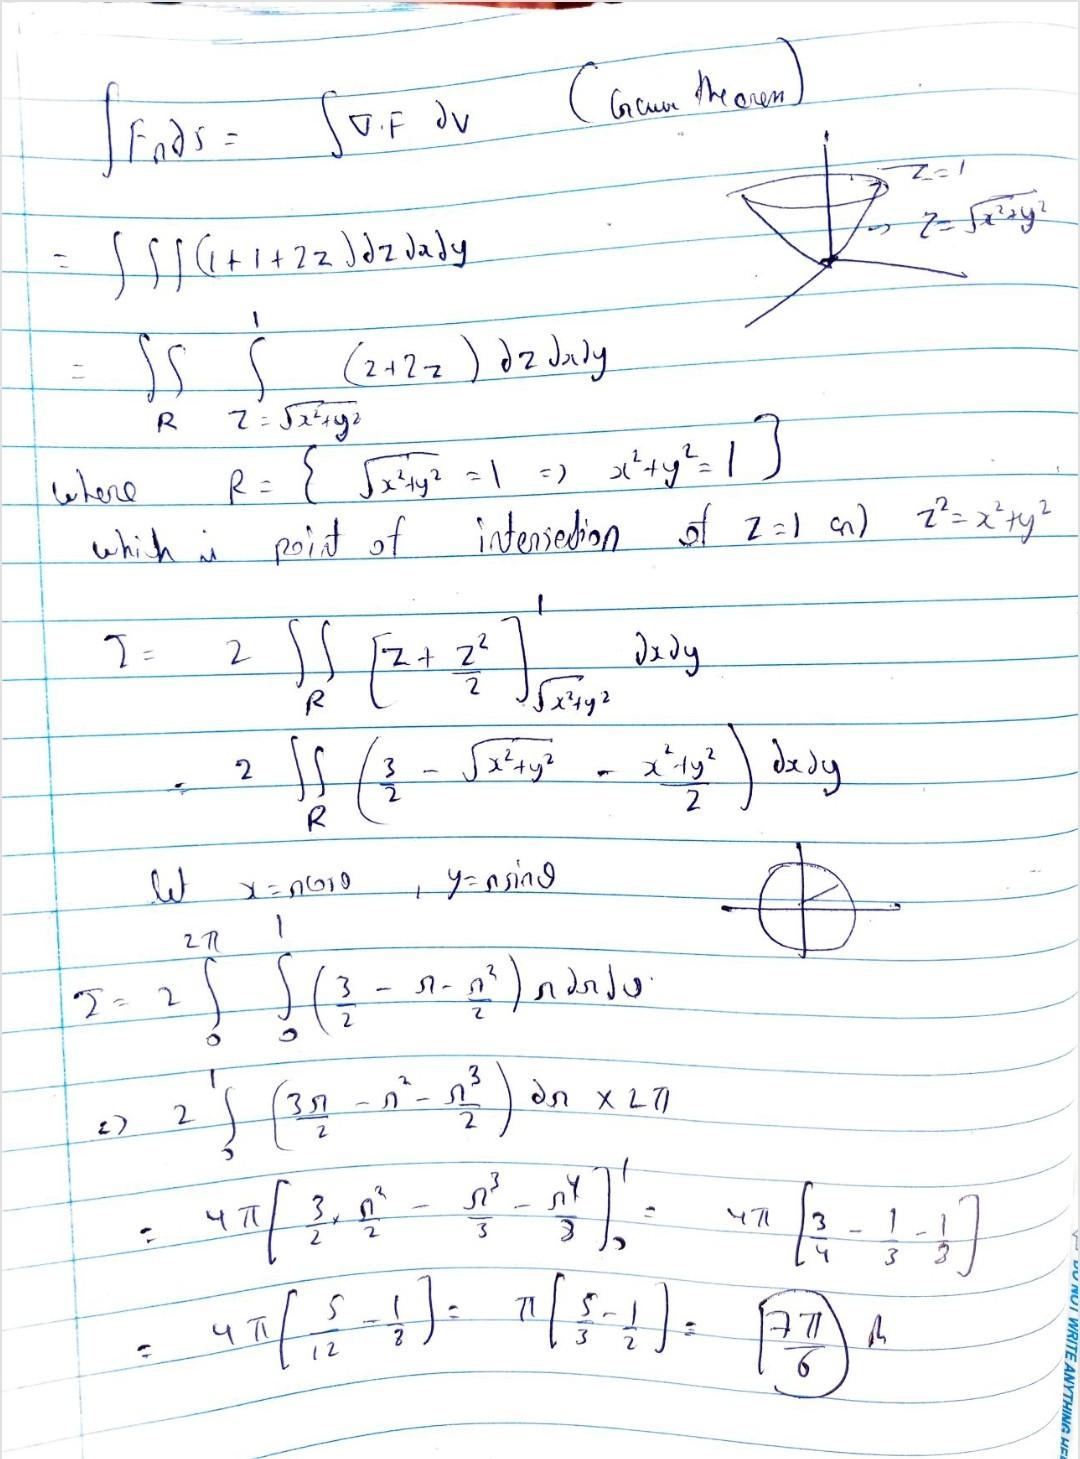 ∫ F.n ∂s = ∫ ∇.F ∂v (Gauss theorem)
z=1
z=√x²+y²
= ∫∫∫ (1+1+2z) dz dx dy
= ∫∫_R ∫_{z=√x²+y²}^1 (2+2z) dz dx dy
where R = { √x²+y² = 1 => x²+y² = 1 }
which is point of intersection of z=1 and z²=x²+y²
I = 2 ∫∫_R [z + z²/2]_{√x²+y²}^1 dx dy
= 2 ∫∫_R (3/2 - √x²+y² - x²+y²/2) dx dy
let x=rcosθ , y=rsinθ
I = 2 ∫_0^{2π} ∫_0^1 (3/2 - r - r²/2) r dr dθ
=> 2 ∫_0^1 (3r/2 - r² - r³/2) dr × 2π
= 4π [3/2 . r²/2 - r³/3 - r⁴/8]_0^1 = 4π [3/4 - 1/3 - 1/8]
= 4π [5/12 - 1/8] = π [5/3 - 1/2] = 7π/6
DO NOT WRITE ANYTHING HE